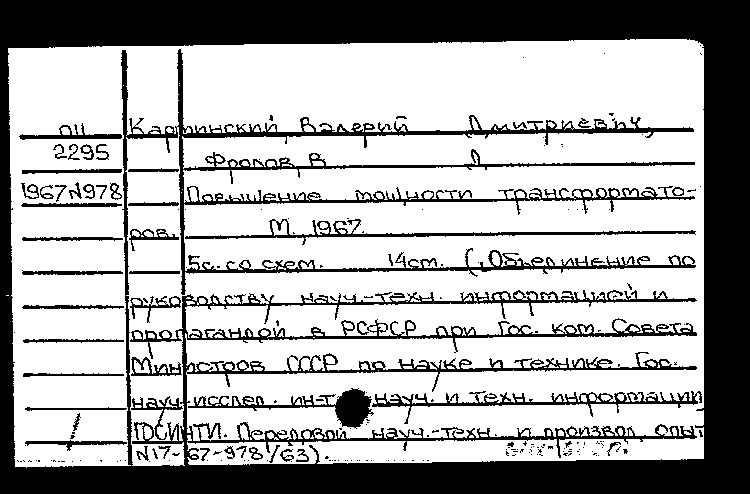 ПЦ Картинский, Валерий Дмитриевич,
2295 Фролов, В Д.
1967N978 Повышение мощности трансформато-
ров. М., 1967
5с. со схем. 14см. (Объединение по
руководству науч.-техн. информацией и
пропагандой в РСФСР при Гос. ком. Совета
Министров СССР по науке и технике. Гос.
науч.-исслед. ин-т науч. и техн. информации
ГОСИНТИ. Передовой науч.-техн. и произвол. опыт
N17-67-978/63).